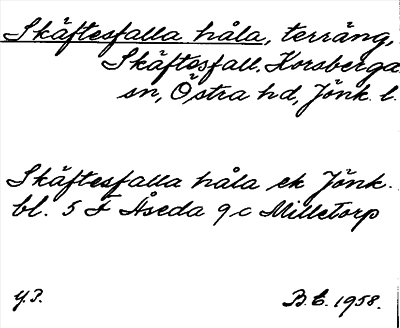 Skäftesfalla håla, terräng,
Skäftesfall. Korsberga
sn, Östra hd, Jönk. l.
Skäftesfalla håla ek Jönk.
bl. 5 F Åseda 9 c Milletorp
Y.P.
B.E. 1958.